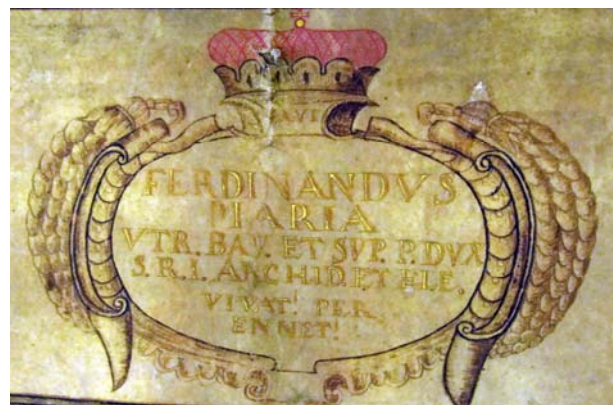 FERDINANDVS
MARIA
VTR. BAV. ET SVP. P. DVX
S. R. I. ARCHID. ET ELE.
VIVAT! PER
ENNET!